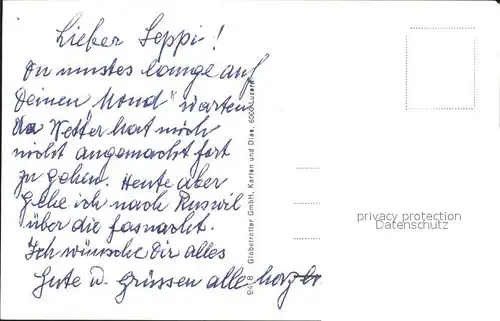 Lieber Seppi!
Du mustes lange auf
Deinen "Hond" warten
da Wetter hat mich
nicht angemacht fort
zu gehen. Heute aber
gehe ich nach Ruswil
über die fasnacht.
Ich wünsche Dir alles
Gute u. grüssen alle herz
9418 Globetrotter GmbH, Karten und Dias, 6000 Luzern
privacy protection
Datenschutz